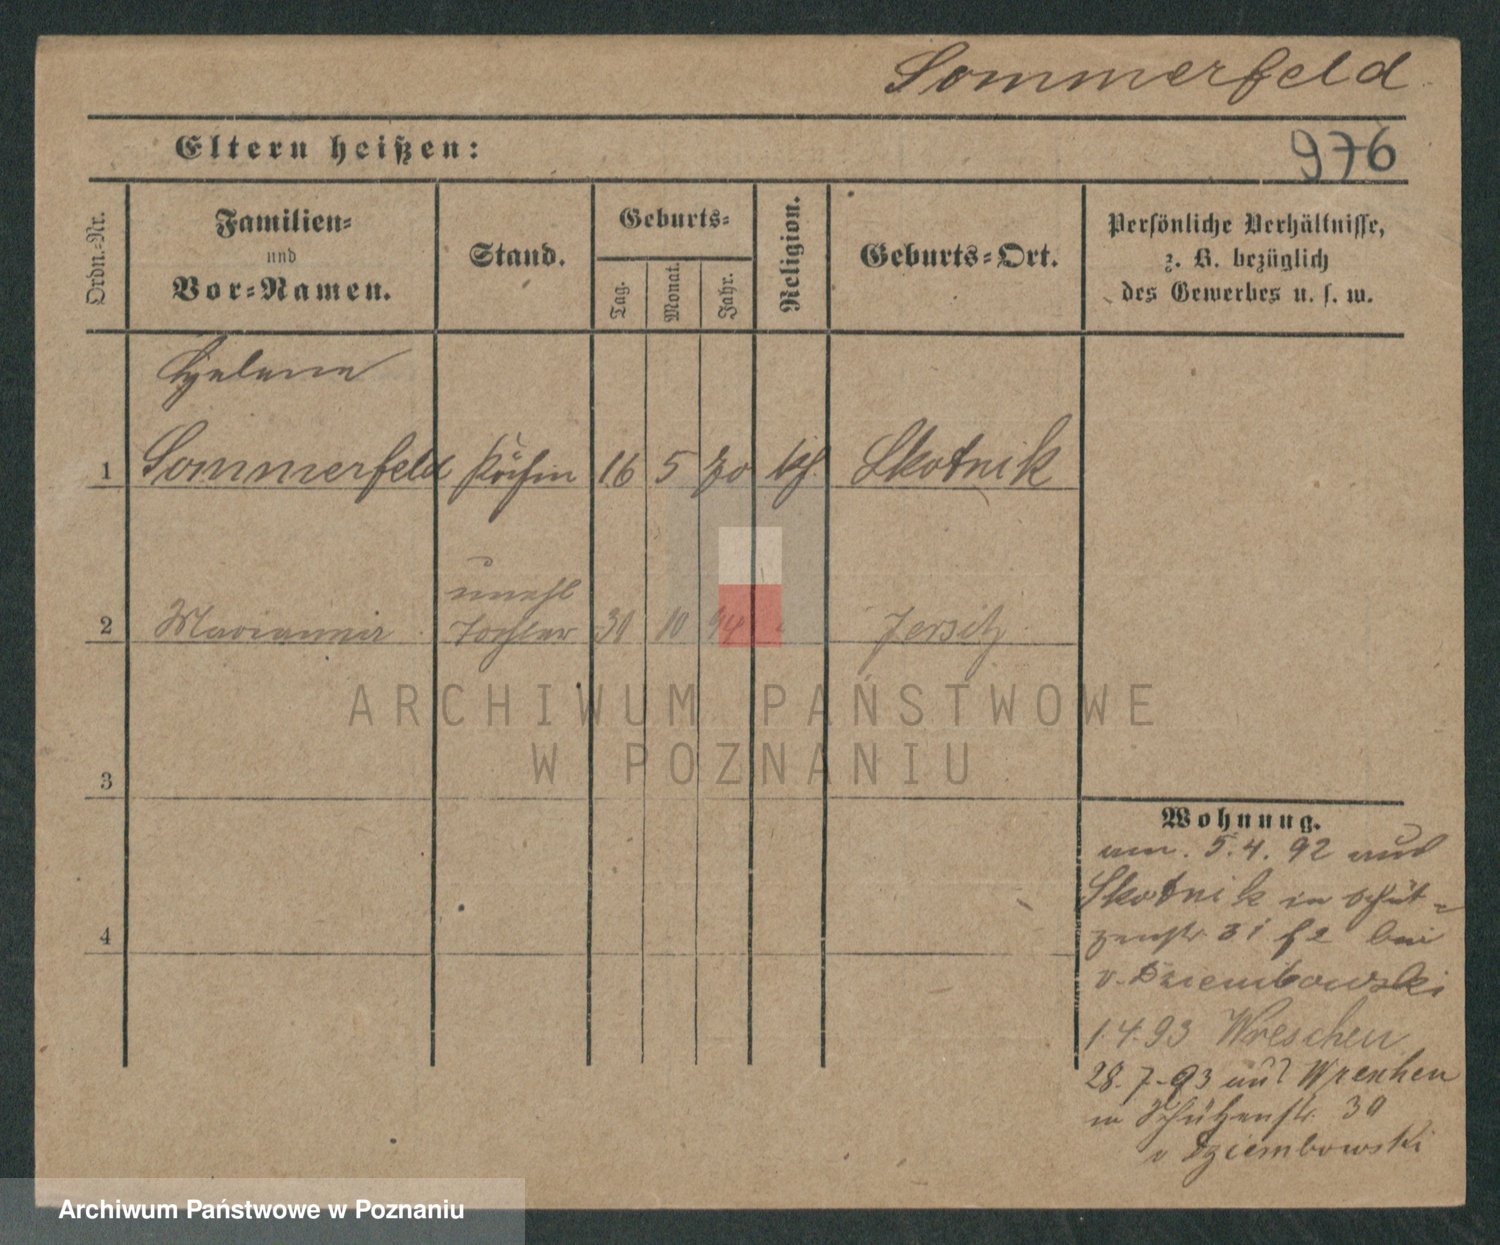 Sommerfeld
Eltern heißen:
976
Ordn.-Nr.
Familien-
und
Vor-Namen.
Stand.
Geburts-
Tag.
Monat.
Jahr.
Religion.
Geburts-Ort.
Persönliche Verhältnisse,
z. B. bezüglich
des Gewerbes u. s. w.
1
Sommerfeld Köchin 16 5 70 kh. Skotnik
unehl
2 Marianna Tochter 30 10 94 Jersitz
ARCHIWUM PAŃSTWOWE
W POZNANIU
3
4
Wohnung.
am. 5.4.92 aus
Skotnik in Schüt-
zenstr 31 bei
v. Dziembowski
1.4.93 Wreschen
28.7.93 aus Wreschen
in Schützenstr. 30
v Dziembowski
Archiwum Państwowe w Poznaniu